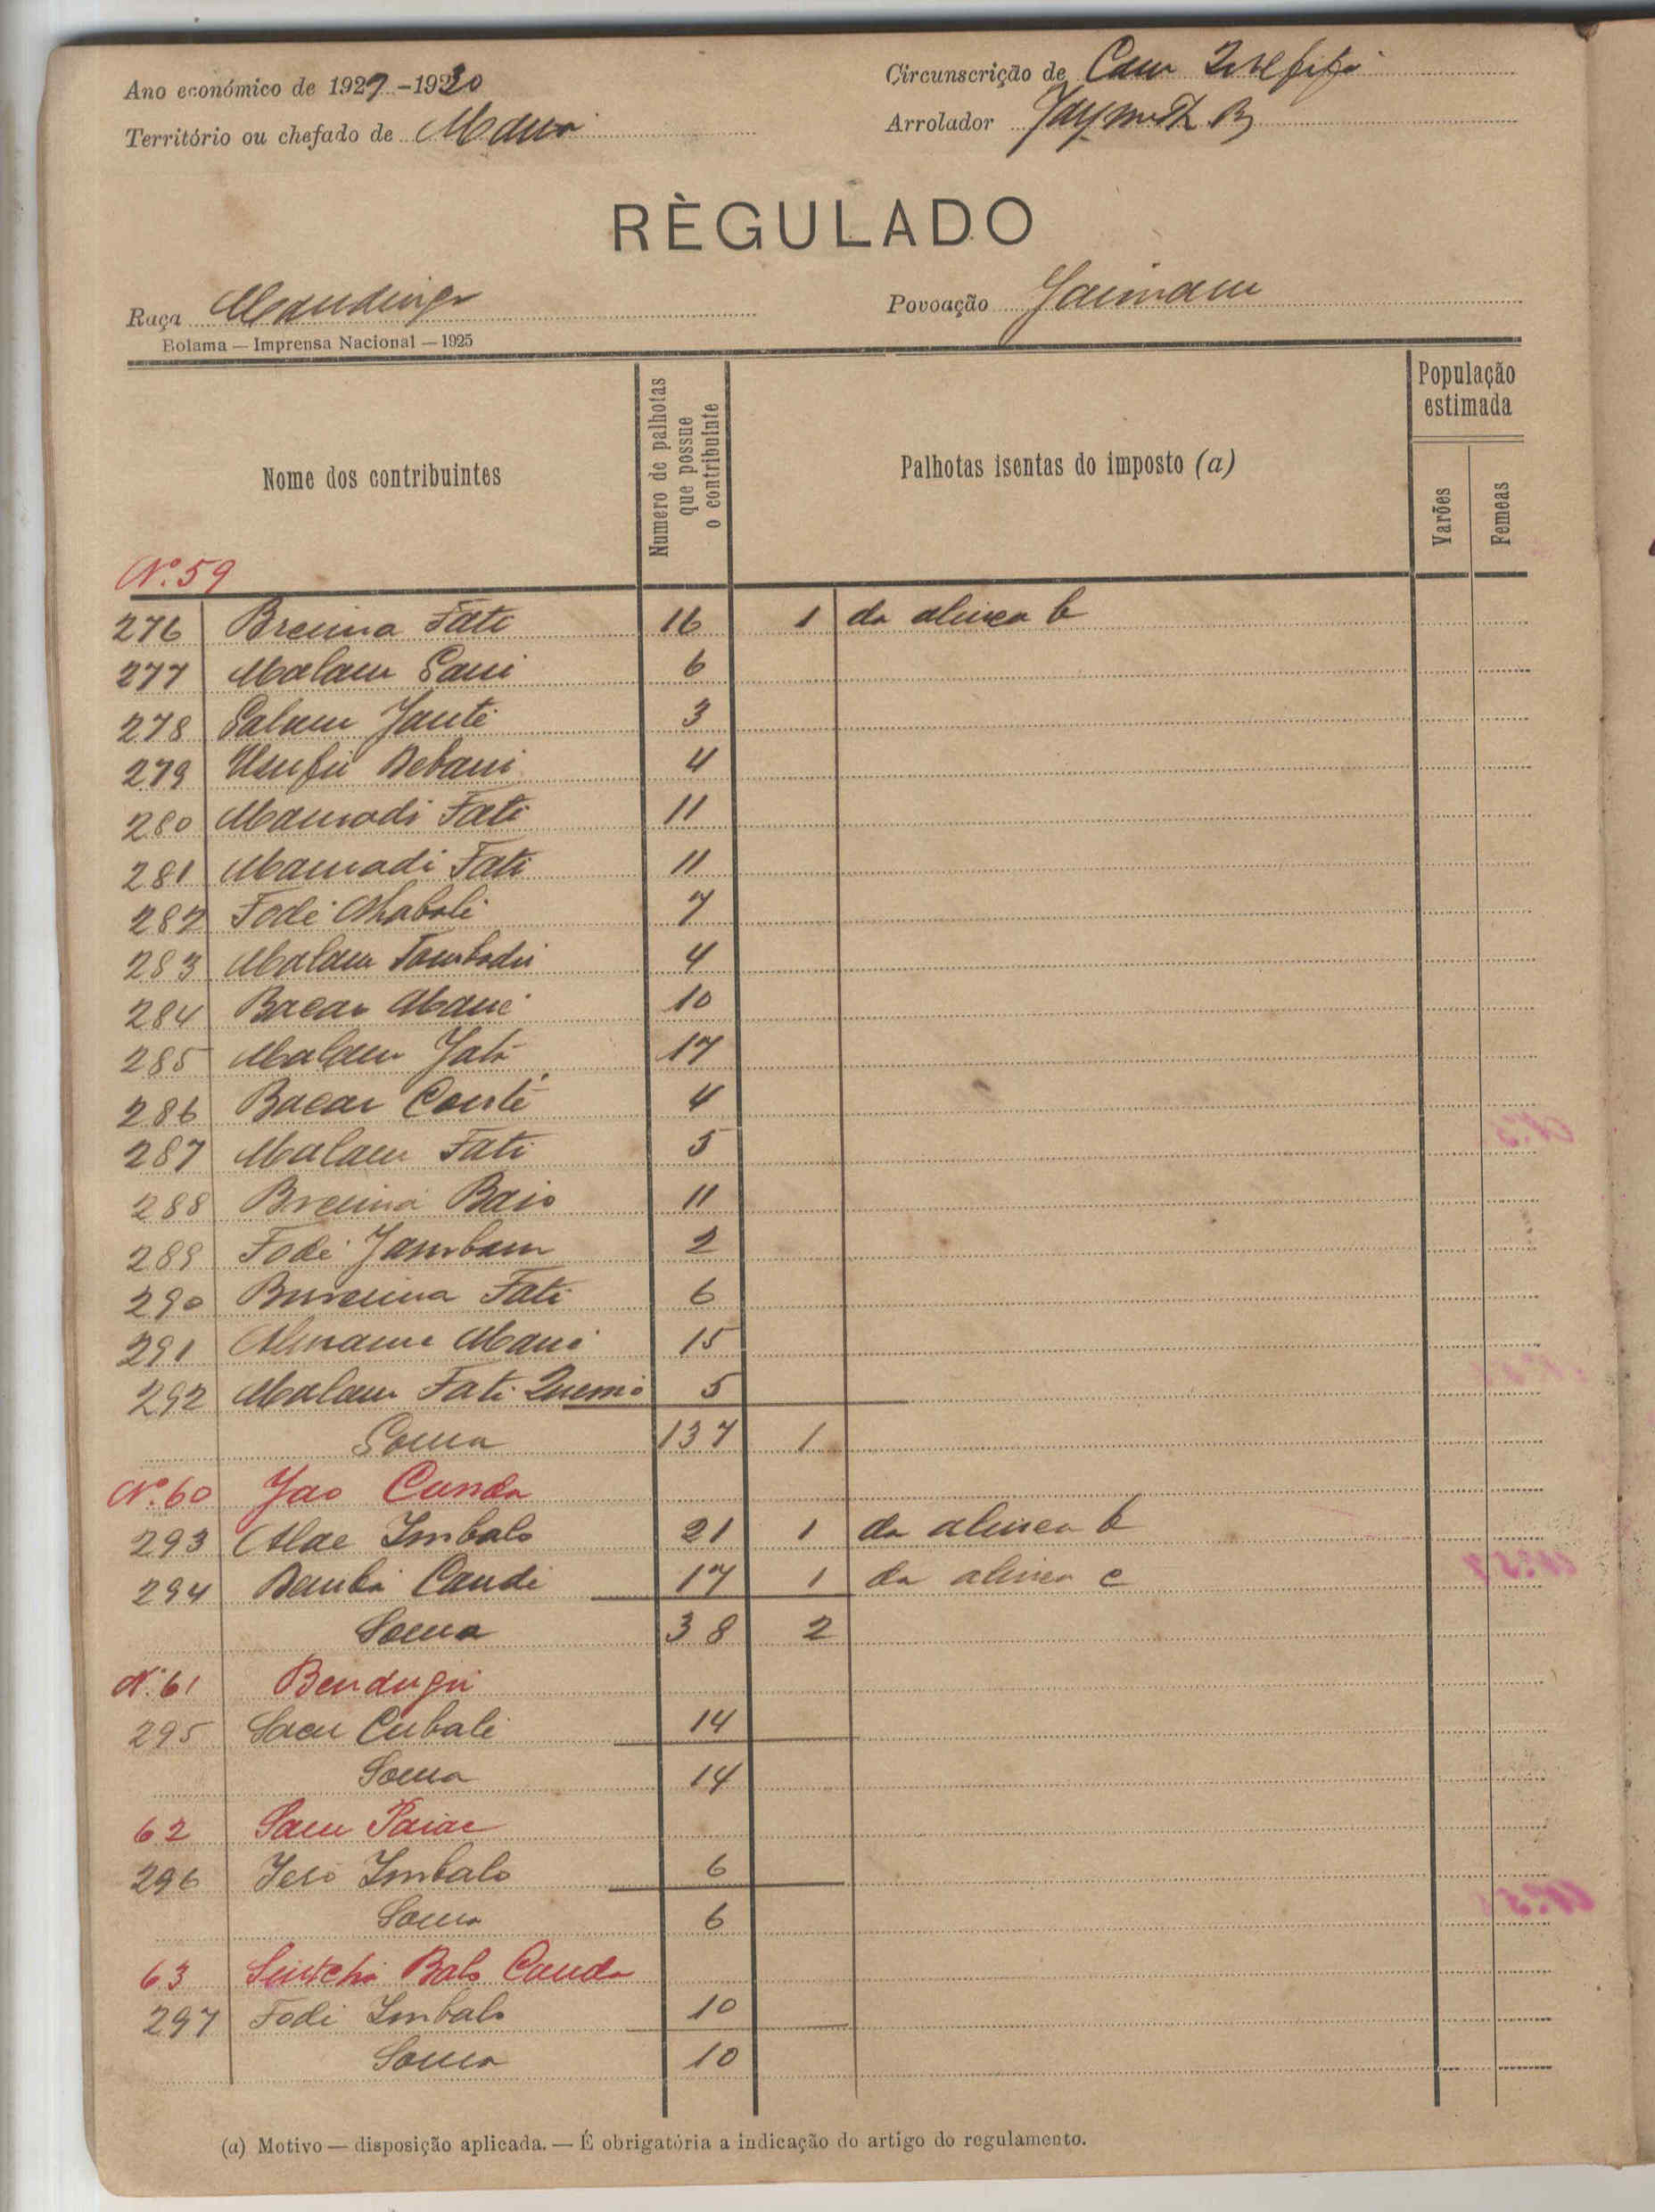 Ano económico de 1929-1930
Circunscrição de
Território ou chefado de
Arrolador
RÈGULADO
Raça Mandinga
Povoação
Bolama — Imprensa Nacional — 1925
Nome dos contribuintes
Numero de palhotas que possue o contribuinte
Palhotas isentas do imposto (a)
População estimada
Varões
Femeas
Nº. 59
276 Breima Fati 16 1 da alinea b
277 Malam Sani 6
278 Salam Jante 3
279 4
280 Mamadi Fati 11
281 Mamadi Fati 11
282 Fodé 7
283 Malam 4
284 Bacar Mané 10
285 Malam 17
286 Bacar 4
287 Malam Fati 5
288 Breima Baio 11
289 Fodé Jambam 2
290 Bureima Fati 6
291 Almame Mané 15
292 Malam Fati Quemo 5
Soma 137 1
Nº. 60 Jao Cunda
293 Alae Imbalo 21 1 da alinea b
294 Demba Candé 17 1 da alinea c
Soma 38 2
Nº. 61 Bendugu
295 Cubali 14
Soma 14
62
296 Imbalo 6
Soma 6
63 Sintchã Balo Cunda
297 Fodi Imbalo 10
Soma 10
(a) Motivo — disposição aplicada. — É obrigatória a indicação do artigo do regulamento.